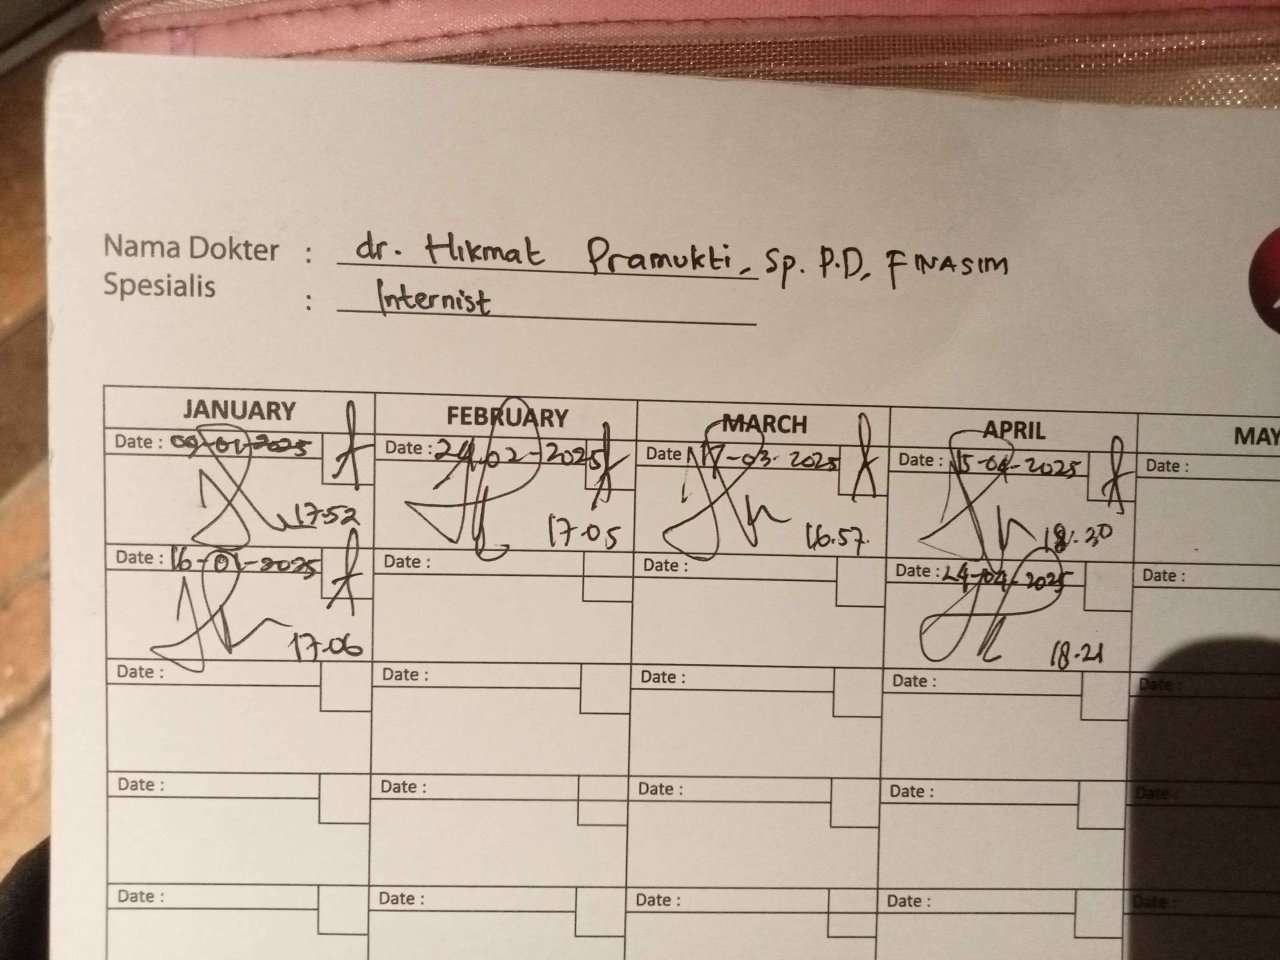 Nama Dokter : dr. Hikmat Pramukti, Sp. P.D, FINASIM
Spesialis : Internist
JANUARY FEBRUARY MARCH APRIL MAY
Date : 09-01-2025 Date : 24-02-2025 Date 17-03-2025 Date : 15-04-2025 Date :
17.52 17.05 16.57. 18.20
Date : 16-01-2025 Date : Date : Date : 24-04-2025 Date :
17.06 18.21
Date : Date : Date : Date : Date :
Date : Date : Date : Date : Date :
Date : Date : Date : Date : Date :